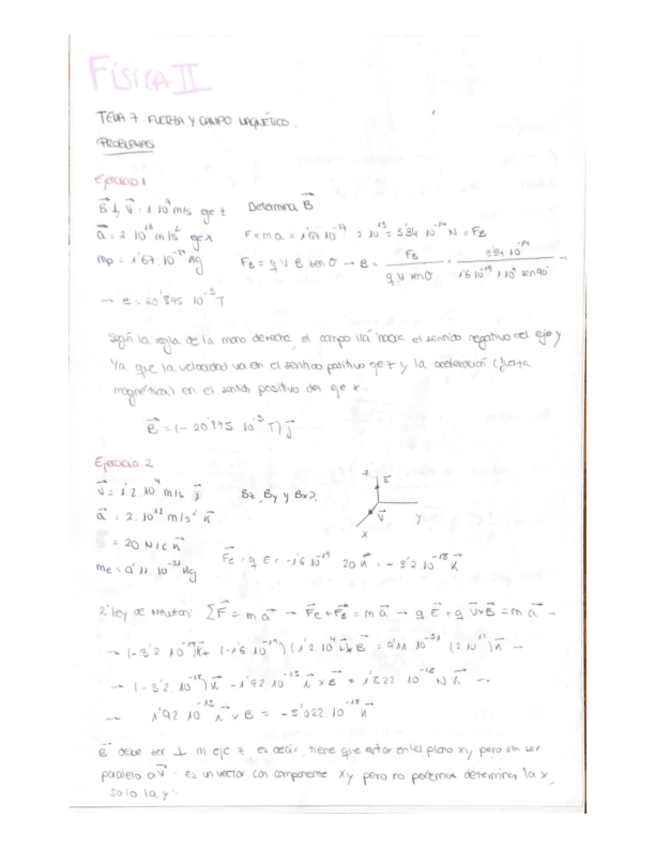 FÍSICA II
TEMA 7 FUERZA Y CAMPO MAGNÉTICO.
PROBLEMAS
Ejercicio 1
B ⊥ v = 1 10⁷ m/s eje z Determina B
a = 2. 10¹³ m/s² eje x F = m a = 1'67 10⁻²⁷ 2 10¹³ = 3'34 10⁻¹⁴ N = FB
mp = 1'67. 10⁻²⁷ kg FB = q v B sen θ → B = FB / q v senθ = 3'34 10⁻¹⁴ / 1'6 10⁻¹⁹ 1 10⁷ sen90
→ B = 20'875 10⁻³ T
Según la regla de la mano derecha, el campo irá hacia el sentido negativo del eje y
Ya que la velocidad va en el sentido positivo eje z y la aceleración (fuerza
magnética) en el sentido positivo del eje x.
B = (- 20'875 10⁻³ T) j
Ejercicio 2
v = 1'2. 10⁴ m/s i Bz, By y Bx?
a = 2. 10¹² m/s² k
= 20 N/C k
z E
v y
x
me = 9'11. 10⁻³¹ kg Fe = q E = -1'6 10⁻¹⁹. 20 k = - 3'2 10⁻¹⁸ k
2ª ley de Newton: ΣF = m a → Fe + FB = m a → q E + q v x B = m a →
→ (-3'2 10⁻¹⁸)k + (-1'6 10⁻¹⁹) (1'2 10⁴ i x B = 9'11 10⁻³¹ (2 10¹²) k →
→ (-3'2. 10⁻¹⁸) k - 1'92 10⁻¹⁵ i x B = 1'822 10⁻¹⁸ N k →
→ 1'92 10⁻¹⁵ i x B = - 5'022 10⁻¹⁸ k
B debe ser ⊥ al eje z es decir, tiene que estar en el plano xy pero sin ser
paralelo a v. Es un vector con componente xy pero no podemos determinar la x,
solo la y.